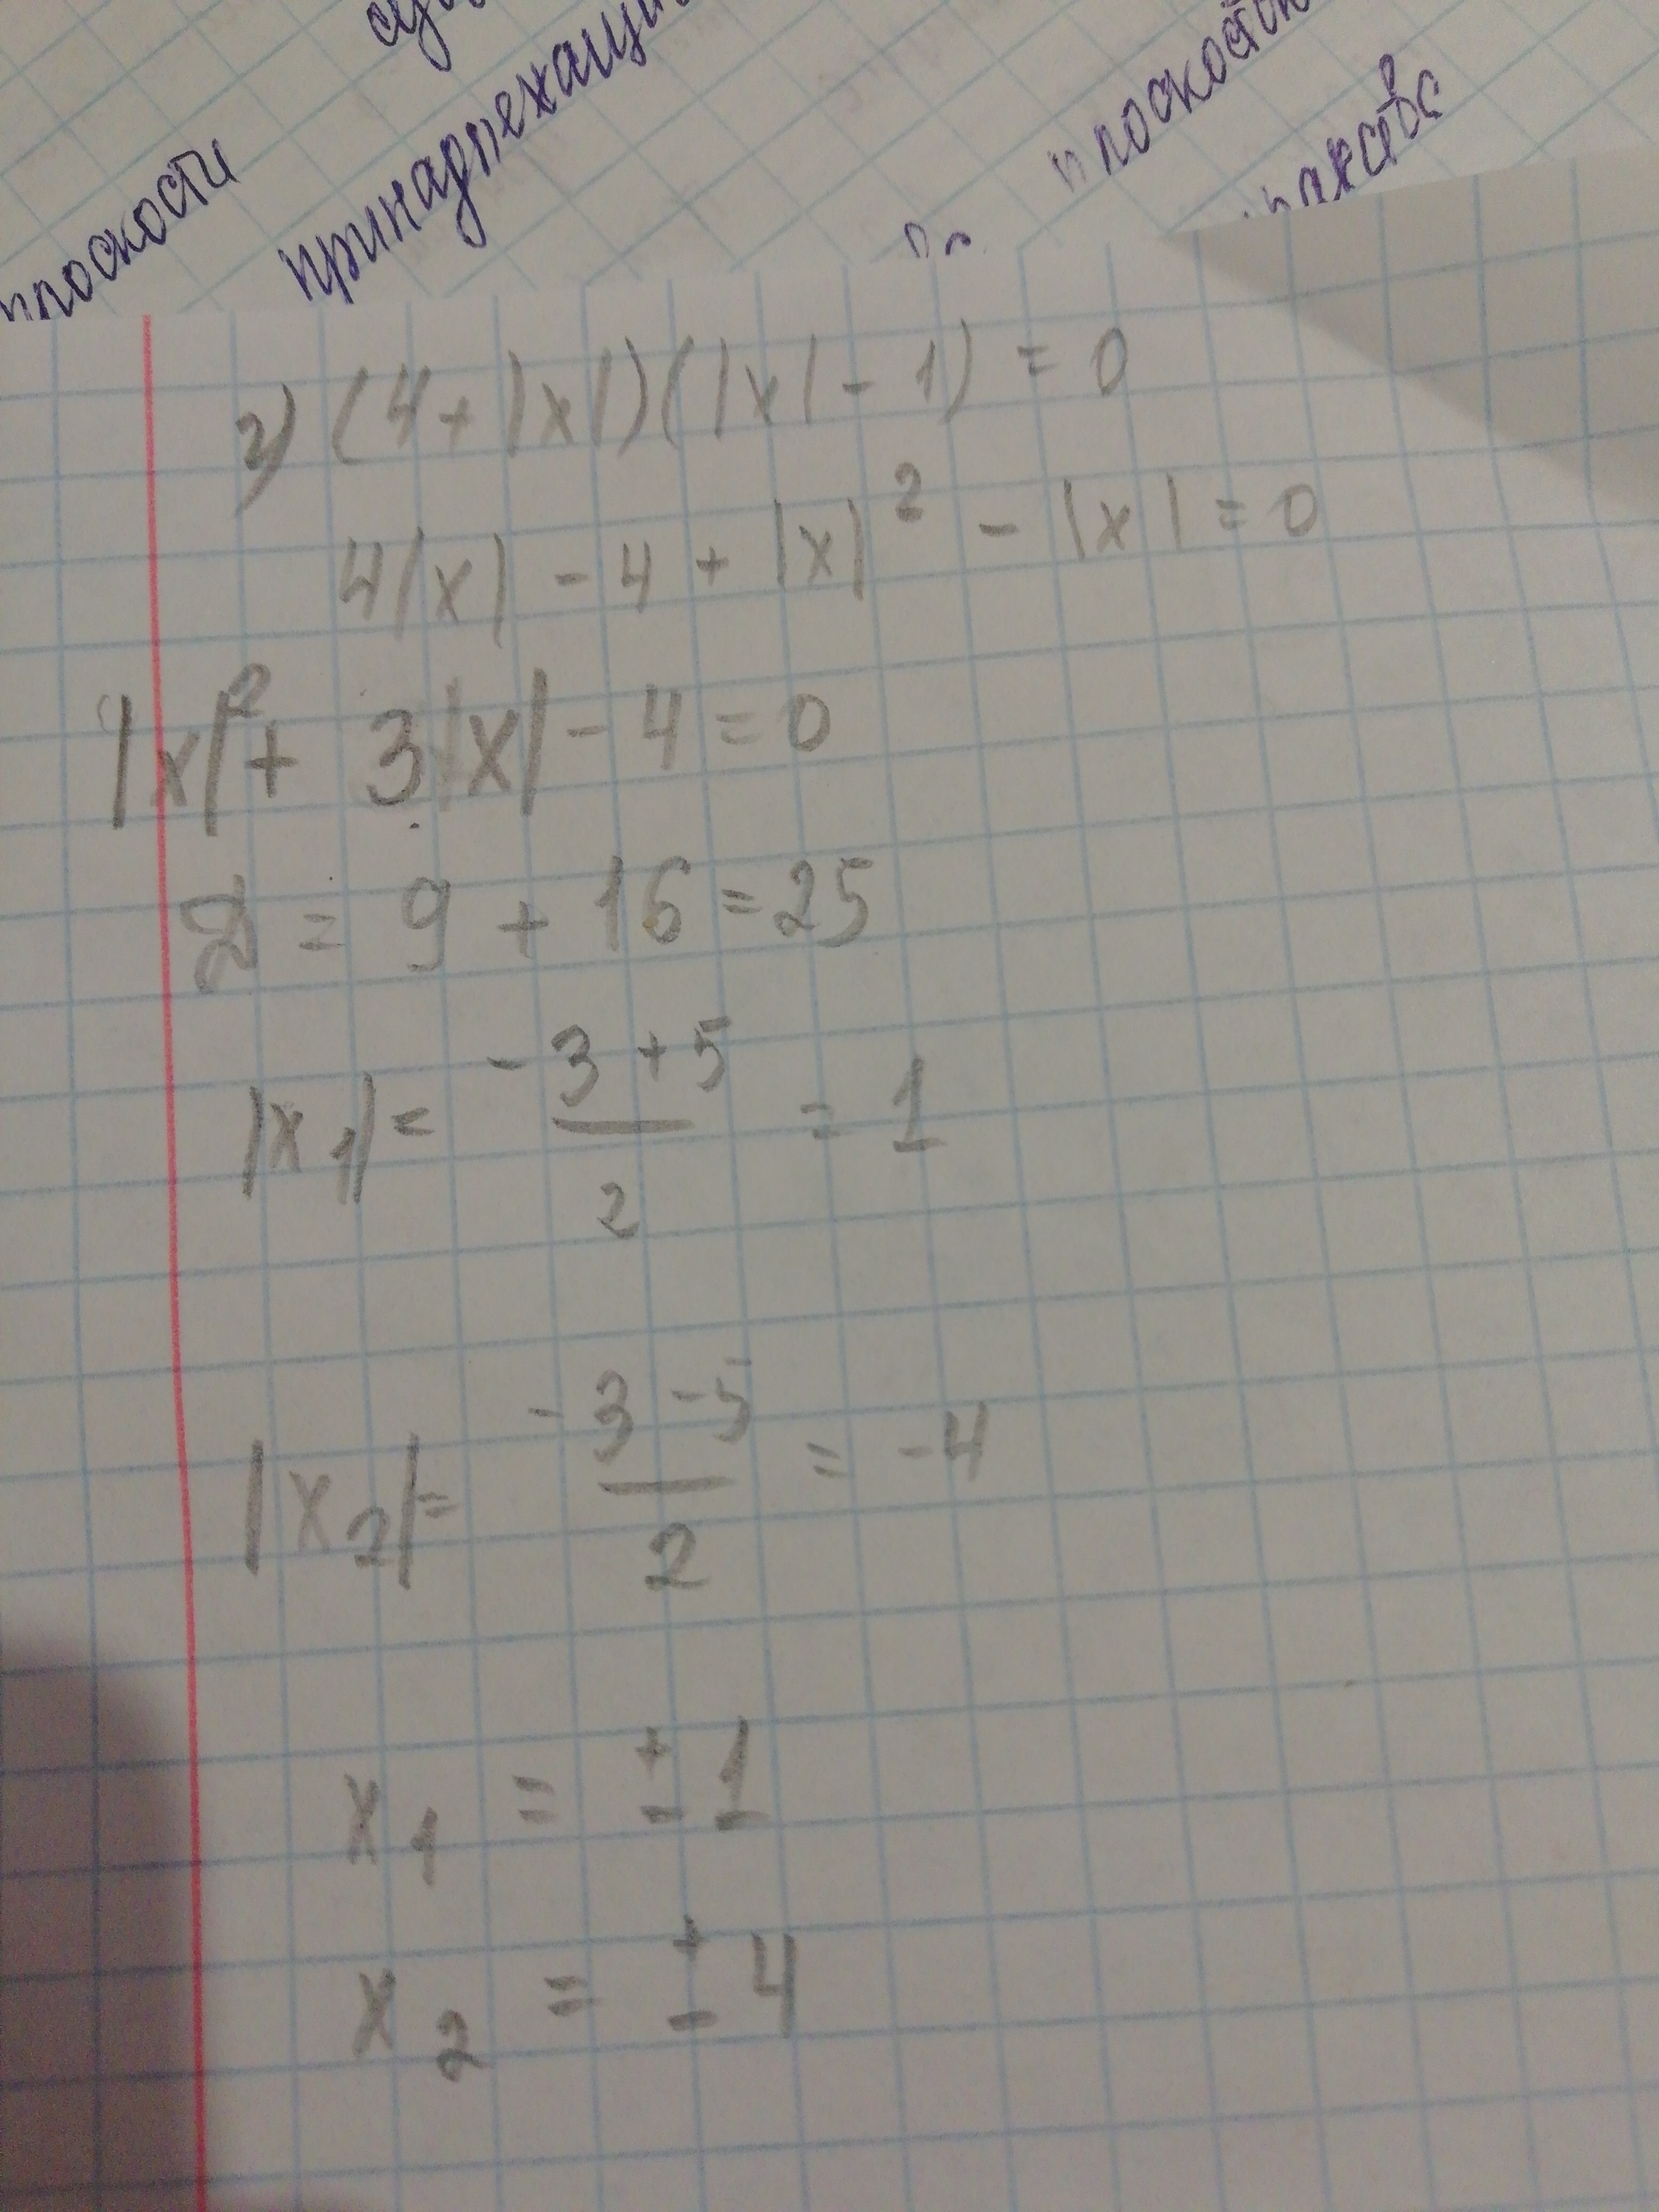 плоскости
принадлежащи
плоскости
2) (4+|x|)(|x|-1) = 0
4|x| - 4 + |x|² - |x| = 0
|x|² + 3|x| - 4 = 0
D = 9 + 16 = 25
|x₁| = (-3+5)/2 = 1
|x₂| = (-3-5)/2 = -4
x₁ = ±1
x₂ = ±4